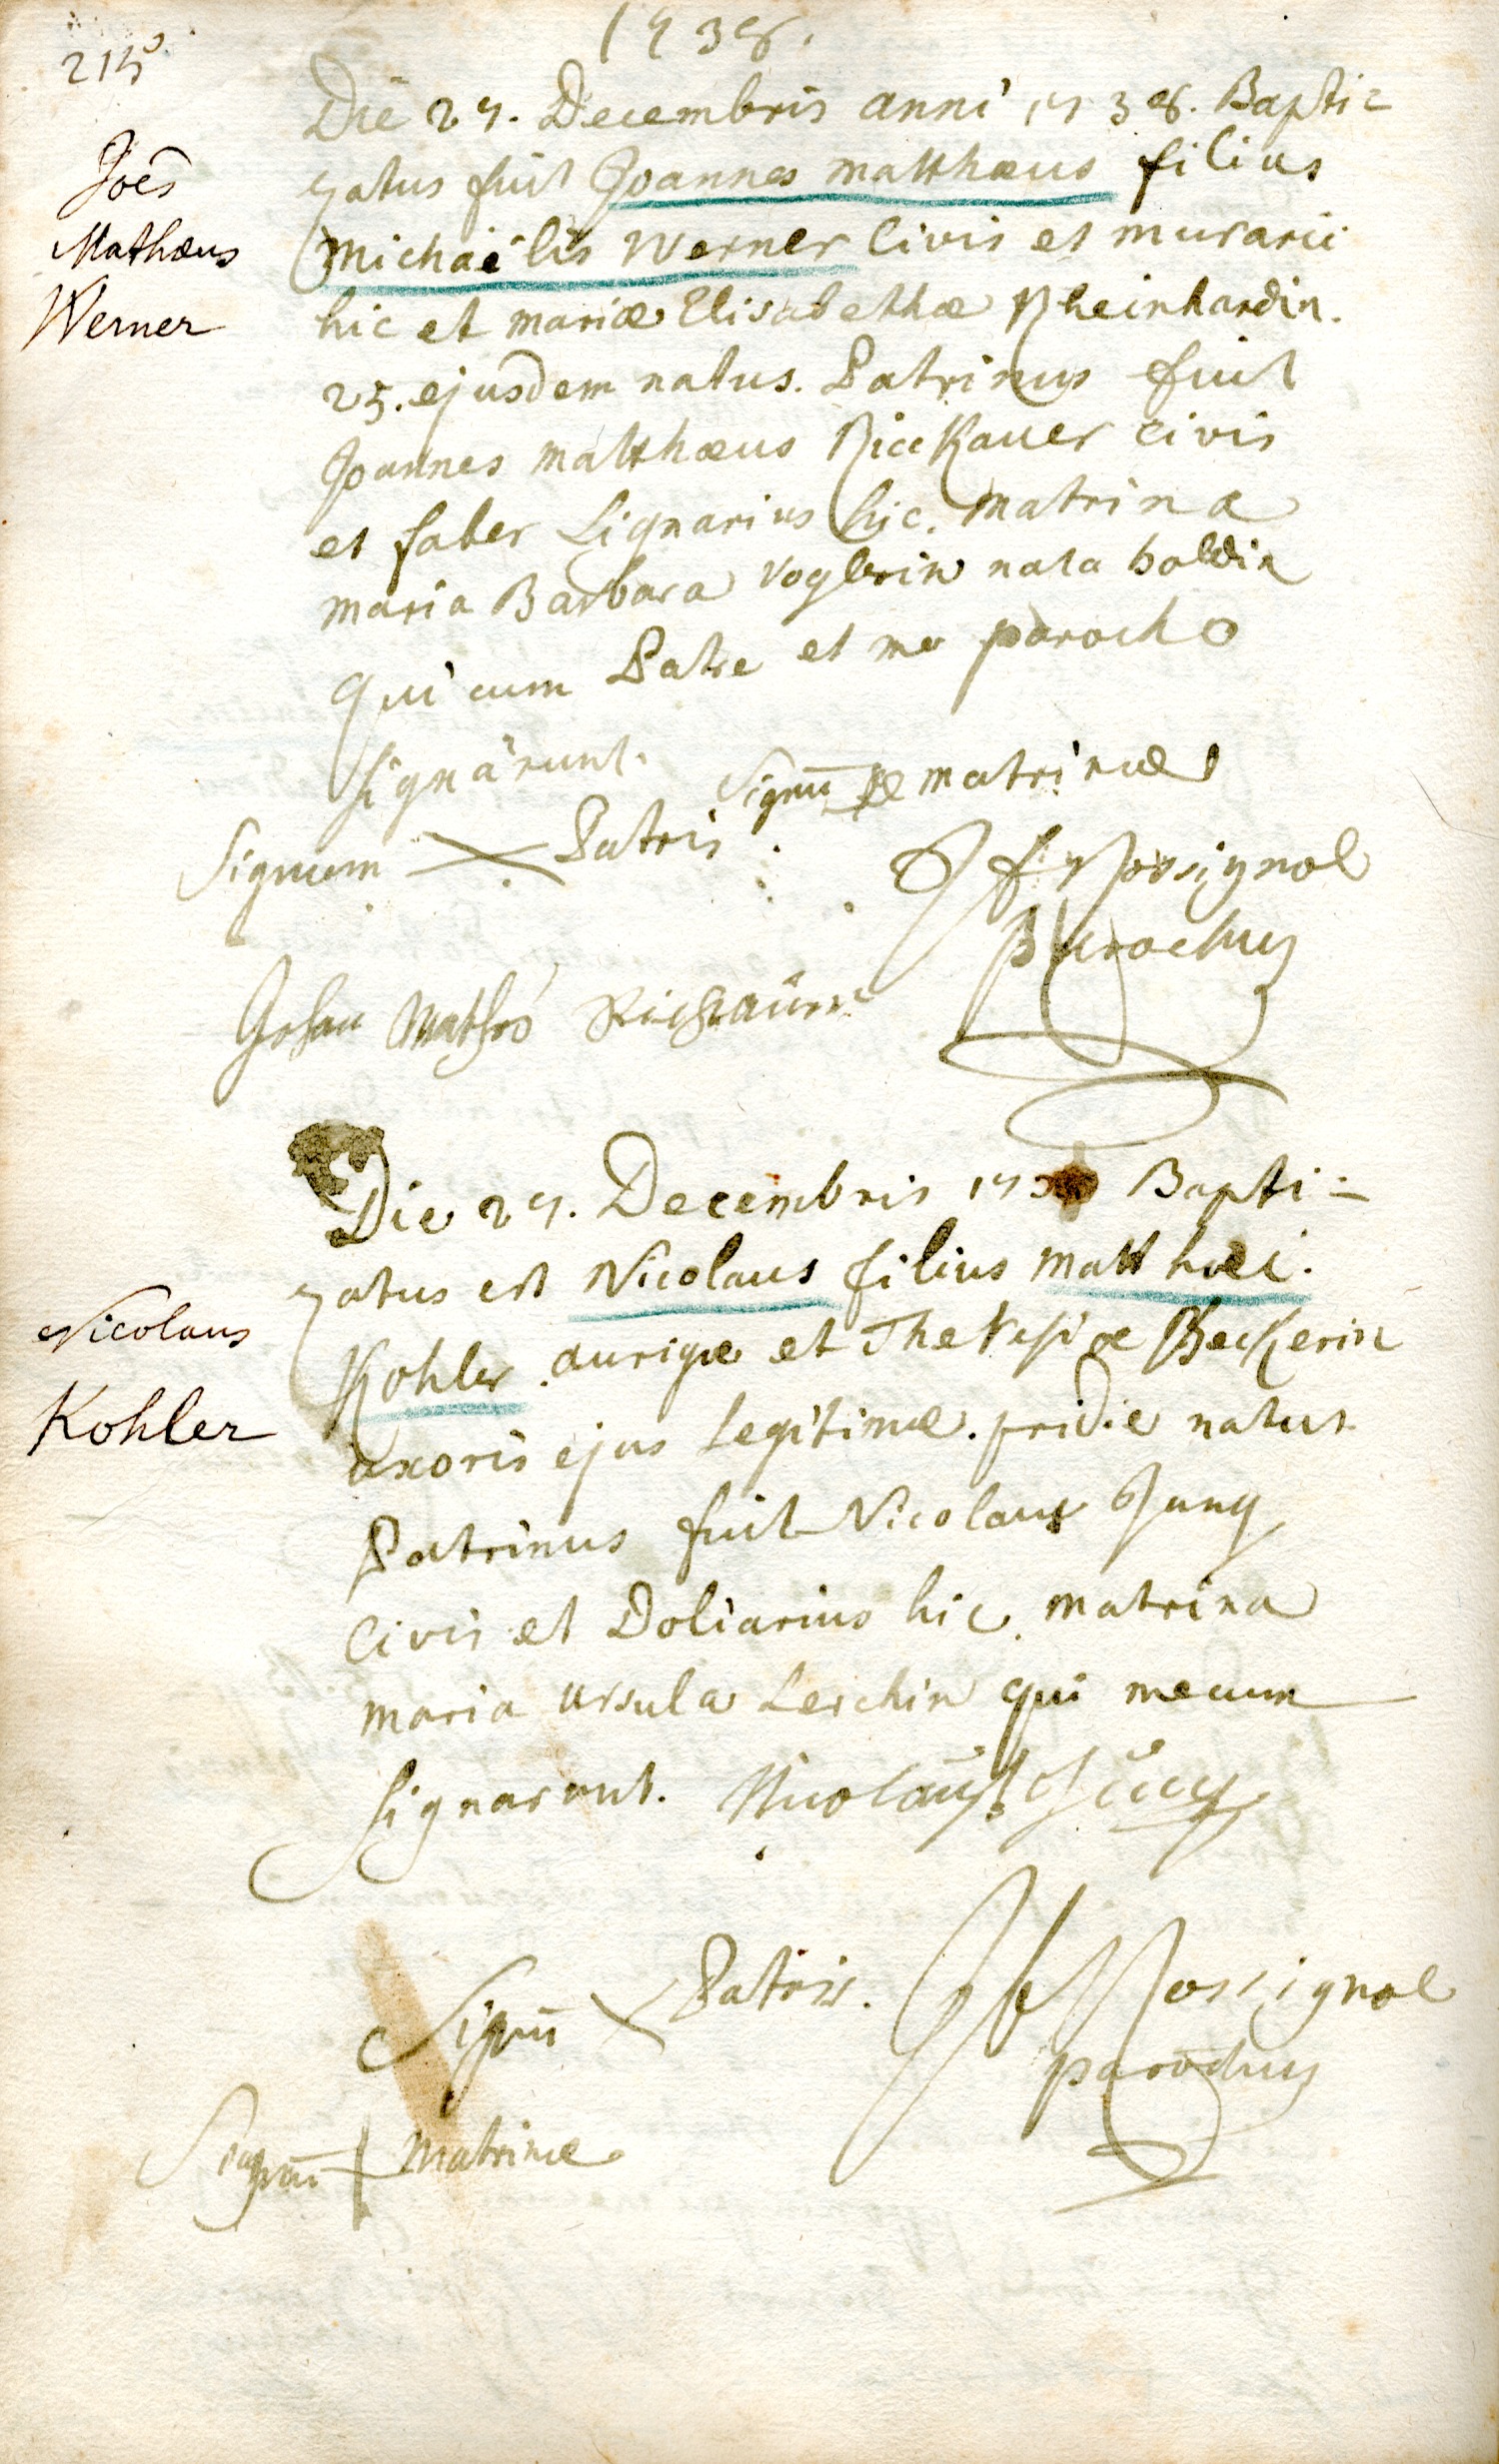 1738.
215
Die 27. Decembris anni 1738. Bapti=
zatus fuit Joannes matthæus filius
Michaëlis Werner Civis et murarii
hic et mariæ Elisabethæ Rheinhardin.
25. ejusdem natus. Patrinus fuit
Joannes matthæus Rickauer civis
et faber Lignarius hic. matrina
maria Barbara Voglerin nata boldin
qui cum Patre et me parocho
signârunt.
Joēs
Mathæus
Werner
Signū matrinæ
Signum X Patris
JF Rossignol
Parochus
Johan Mathes
Die 27. Decembris 17 Bapti=
zatus est Nicolaus filius Matthæi.
Kohler aurigæ et Theresiæ Beckerin
uxoris ejus Legitimæ. pridie natus
Patrinus fuit Nicolaus Jung
Civis et Doliarius hic. matrina
maria Ursula Lerchin qui mecum
signarunt. Nicolaus Jung
Nicolaus
Kohler
Signū X Patris. JF Rossignol
parochus
Signū + Matrinæ